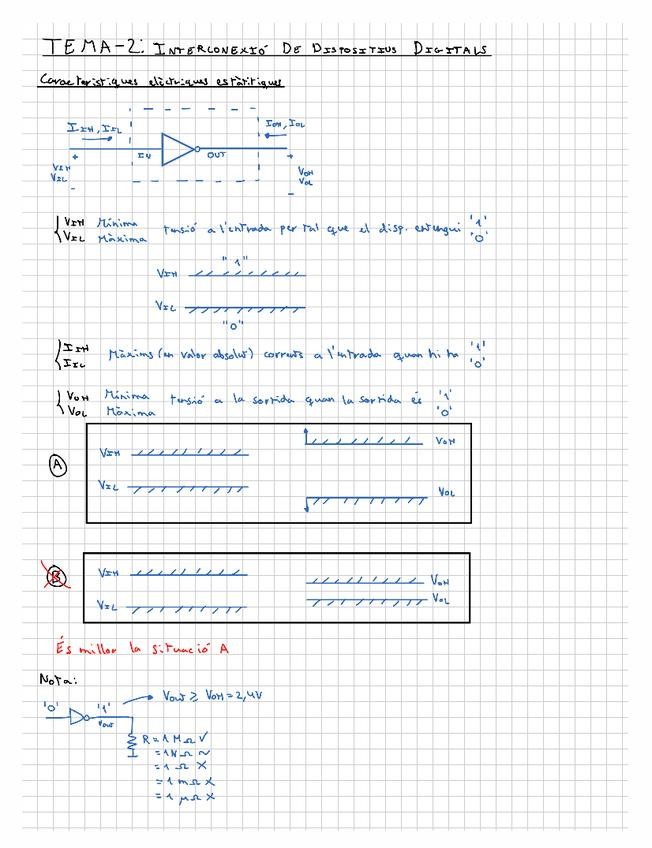 TEMA-2: INTERCONEXIÓ DE DISPOSITIUS DIGITALS
Característiques elèctriques estàtiques
IIH, IIL
IOH, IOL
IN
OUT
+
+
VIH
VIL
-
VOH
VOL
-
VIH Mínima
VIL Màxima
tensió a l'entrada per tal que el disp. entengui '1'
'0'
"1"
VIH
VIL
"0"
IIH
IIL
Màxims (en valor absolut) corrents a l'entrada quan hi ha '1'
'0'
VOH Mínima
VOL Màxima
tensió a la sortida quan la sortida és '1'
'0'
A
VIH
VOH
VIL
VOL
B
VIH
VOH
VIL
VOL
És millor la situació A
Nota:
'0'
'1'
Vout
Vout ≥ VOH = 2,4V
R = 1 MΩ √
= 1KΩ ~
= 1 Ω X
= 1 mΩ X
= 1 μΩ X